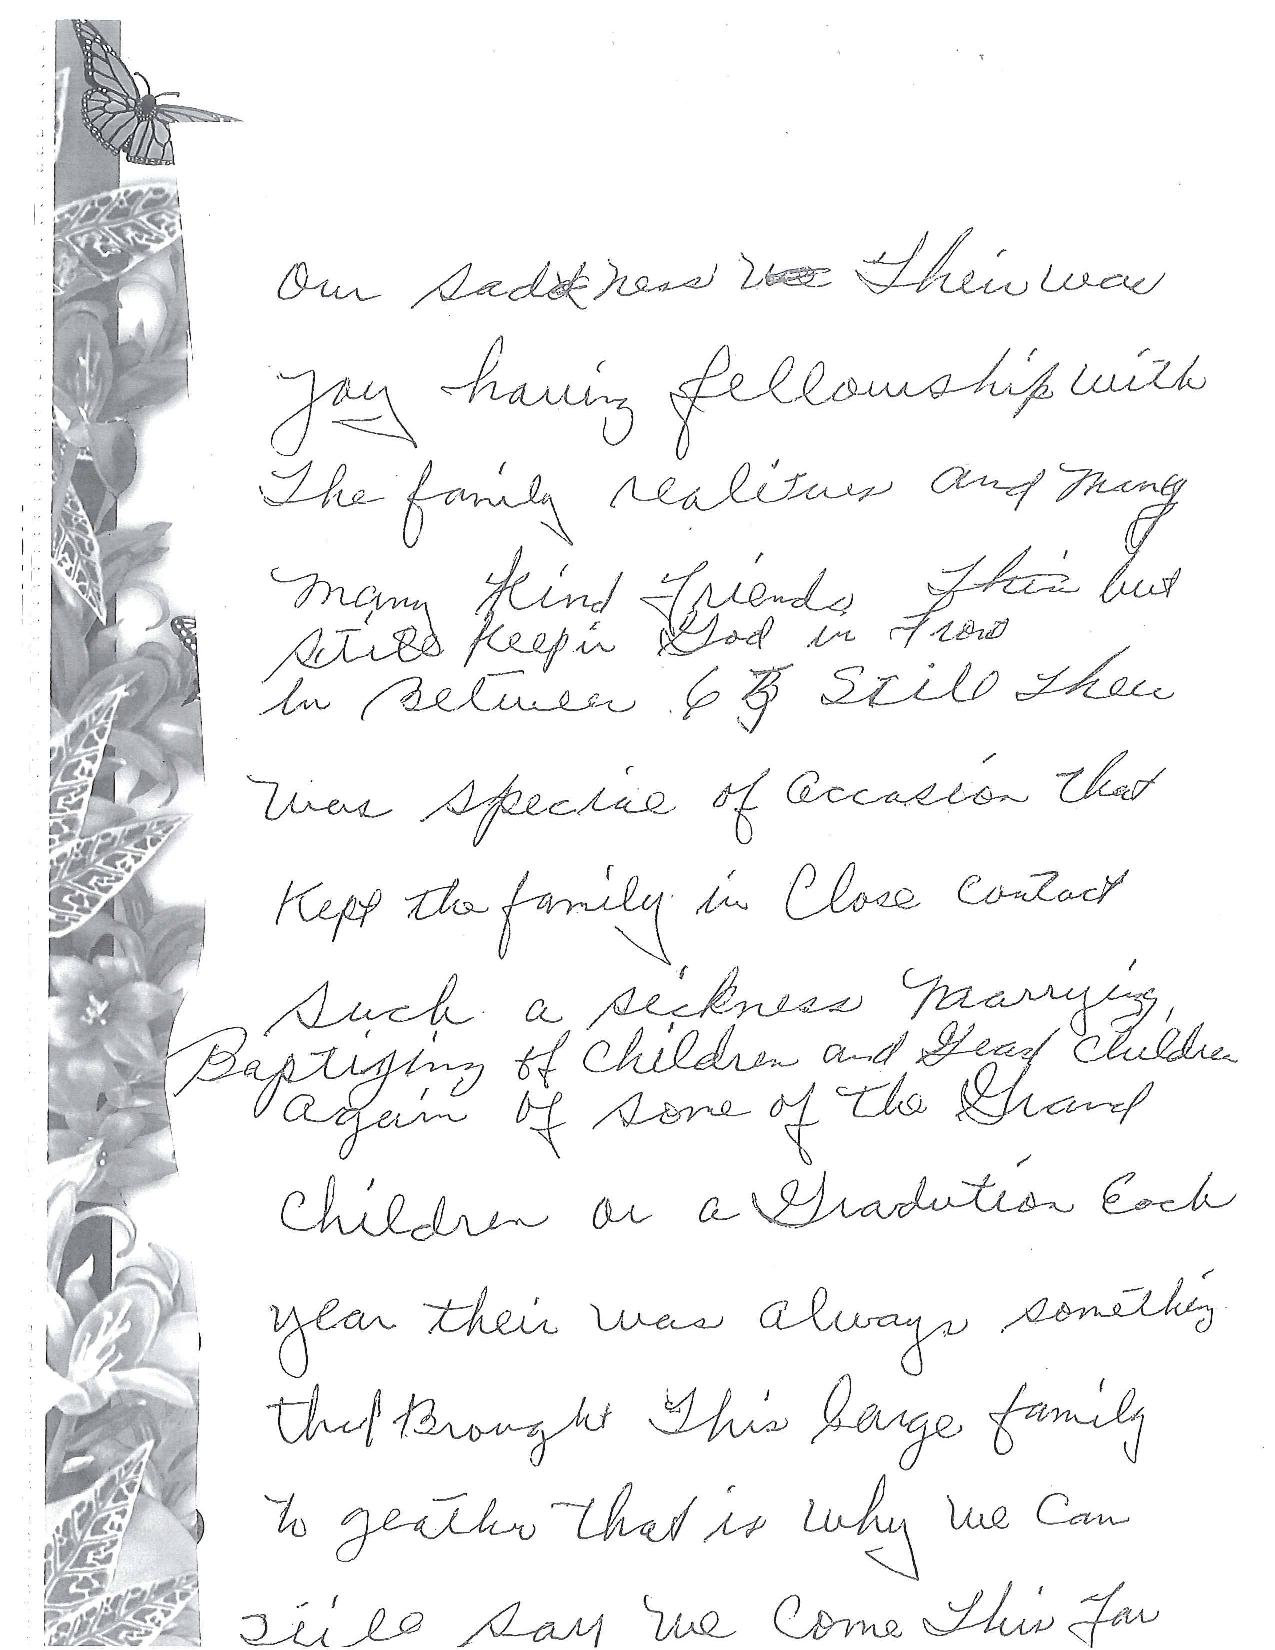 Our saddness Their was
Joy having fellowship with
The family realitives and many
many Kind Friends This but
still keepin God in Front
In between 6 Still Their
was special of Occasion that
Kept the family in Close contact
Such a sickness Marrying,
Baptizing of Children and Grand Children
again of some of the Grand
Children or a Gradution Each
year their was always something
that Brought This large family
to geather that is why we Can
Still say We Come This Far